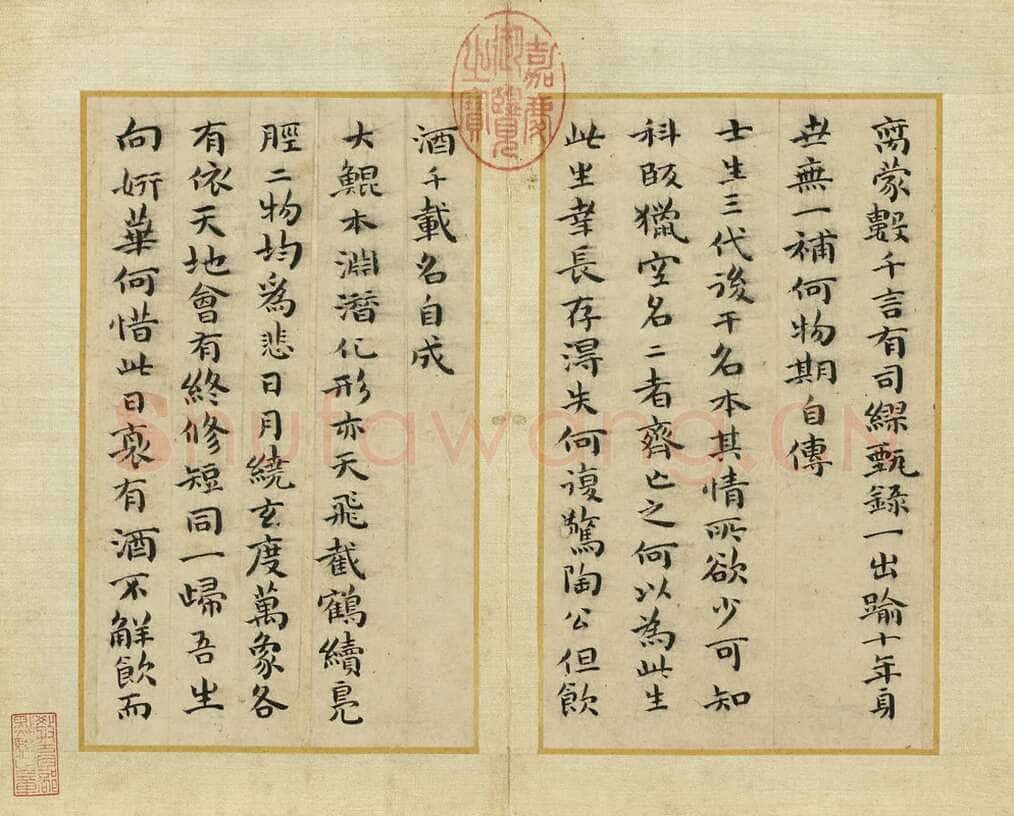 窩蒙數千言有司繆甄錄一出踰十年身
世無一補何物期自傳
士生三代後干名本其情所欲少可知
科畋獵空名二者齊亡之何以為此生
此坐幸長存得失何復驚陶公但飲
酒千載名自成
大鯤本淵潛化形亦天飛截鶴續鳧
脛二物均為悲日月繞玄度萬象各
有依天地會有終修短同一歸吾生
向妍華何惜此日衰有酒不解飲而
嘉慶御覽之寶
Shufawang.CN